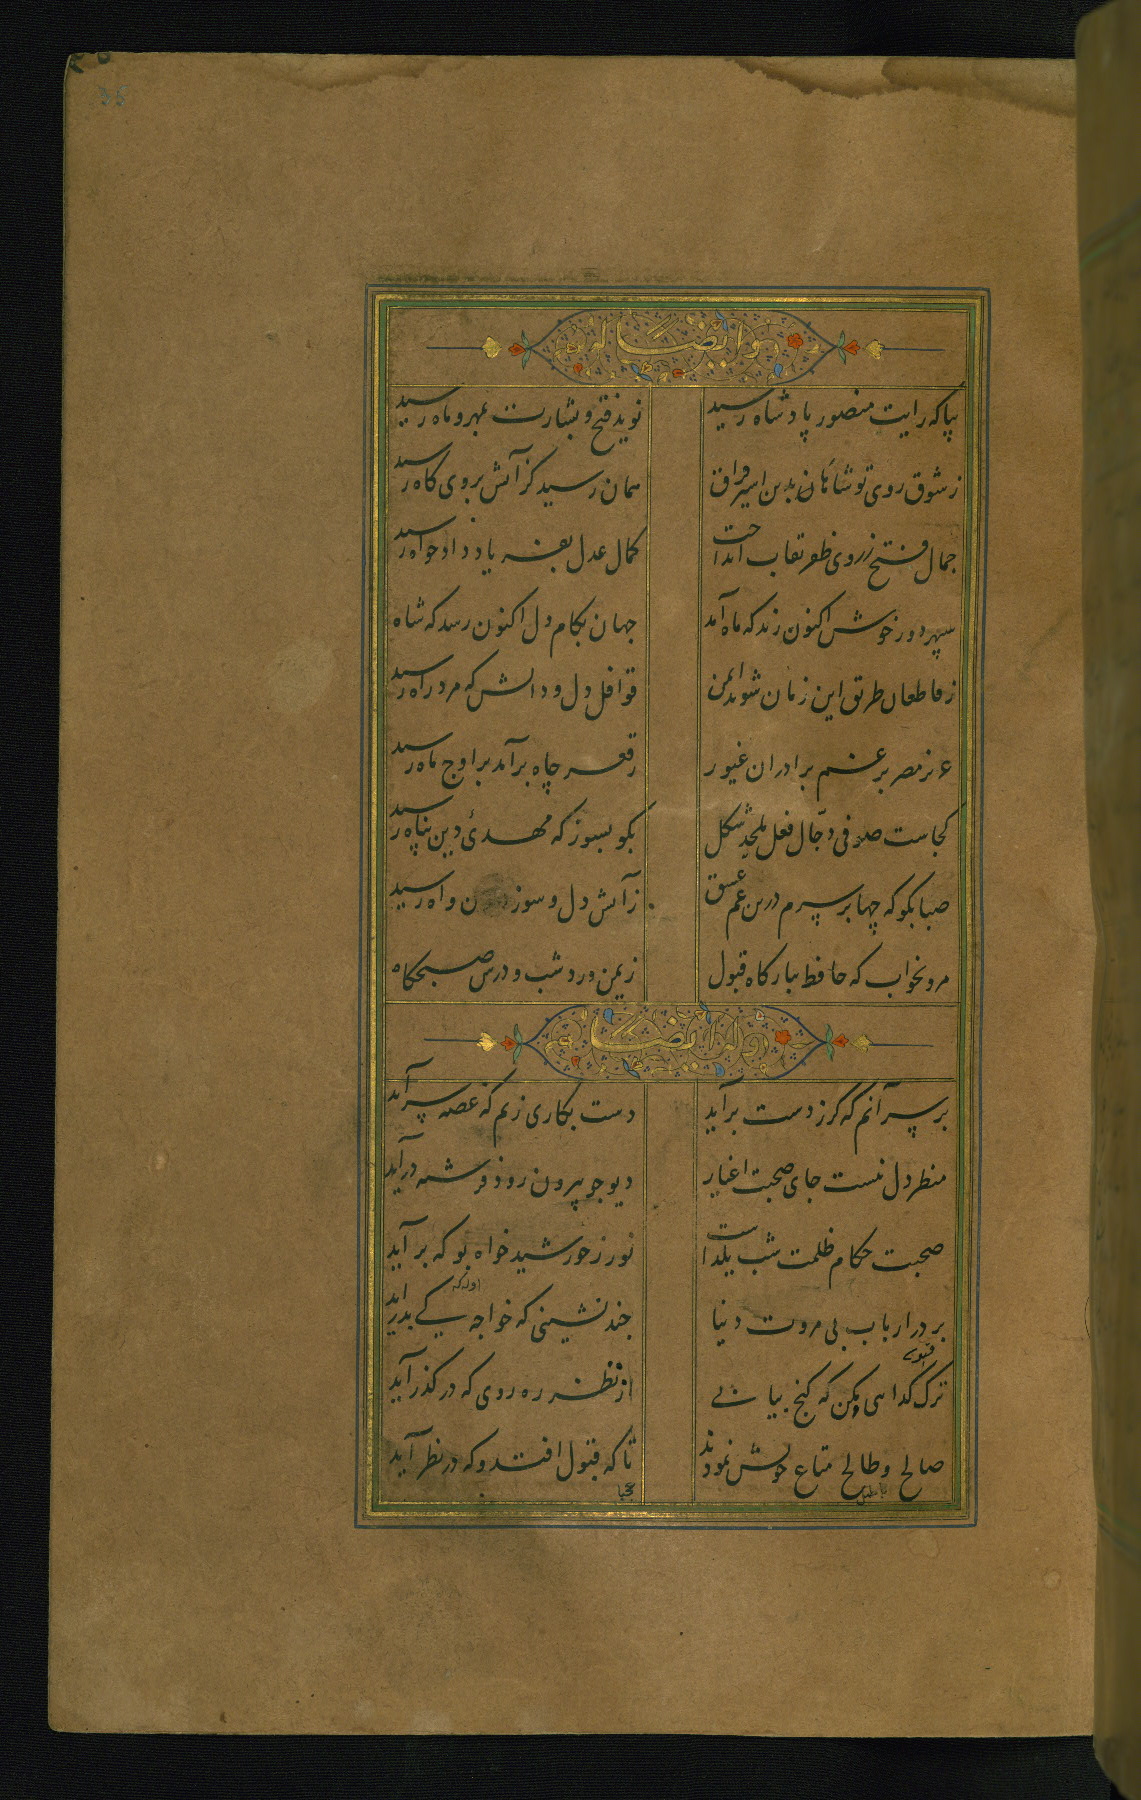 وله ایضا
بیا که رایت منصور پادشاه رسید
نوید فتح و بشارت بمهر و ماه رسید
ز شوق روی تو شاها بدین اسیر فراق
همان رسید کز آتش بروی کاه رسید
جمال فتح ز روی ظفر نقاب انداخت
کمال عدل بفریاد دادخواه رسید
سپهر دور خوش اکنون زند که ماه آمد
جهان بکام دل اکنون رسد که شاه
ز قاطعان طریق این زمان شوند ایمن
قوافل دل و دانش که مرد راه رسید
عزیز مصر برغم برادران غیور
ز قعر چاه برآمد براوج ماه رسید
کجاست صوفی دجّال فعل ملحد شکل
بکو بسوز که مهدیٔ دین پناه رسید
صبا بکو که چها بر سرم درین غم عشق
ز آتش دل و سوز و آه رسید
مرو بخواب که حافظ ببارکاه قبول
ز یمن ورد شب و درس صبحکاه
وله ایضا
بر سر آنم که کر ز دست برآید
دست بکاری زنم که غصه سرآید
منظر دل نیست جای صحبت اغیار
دیو چو بیرون رود فرشته درآید
صحبت حکام ظلمت شب یلداست
نور ز خورشید خواه بو که برآید
بر در ارباب بی مروت دنیا
چند نشینی که خواجه کی بدر آید
ترک کدایی مکن که کنج بیابی
از نظر ره روی که در کذر آید
صالح و طالح متاع خویش نمودند
تا که قبول افتد و که در نظر آید